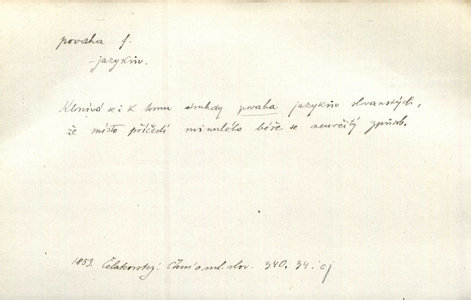 povaha f.
-jazykův.
Klonívá se i k tomu druhdy povaha jazykův slovanských,
že místo příčestí minulého béře se neurčitý způsob.
1853. Čelakovský: Čtení o ml. slov. 340. 34.